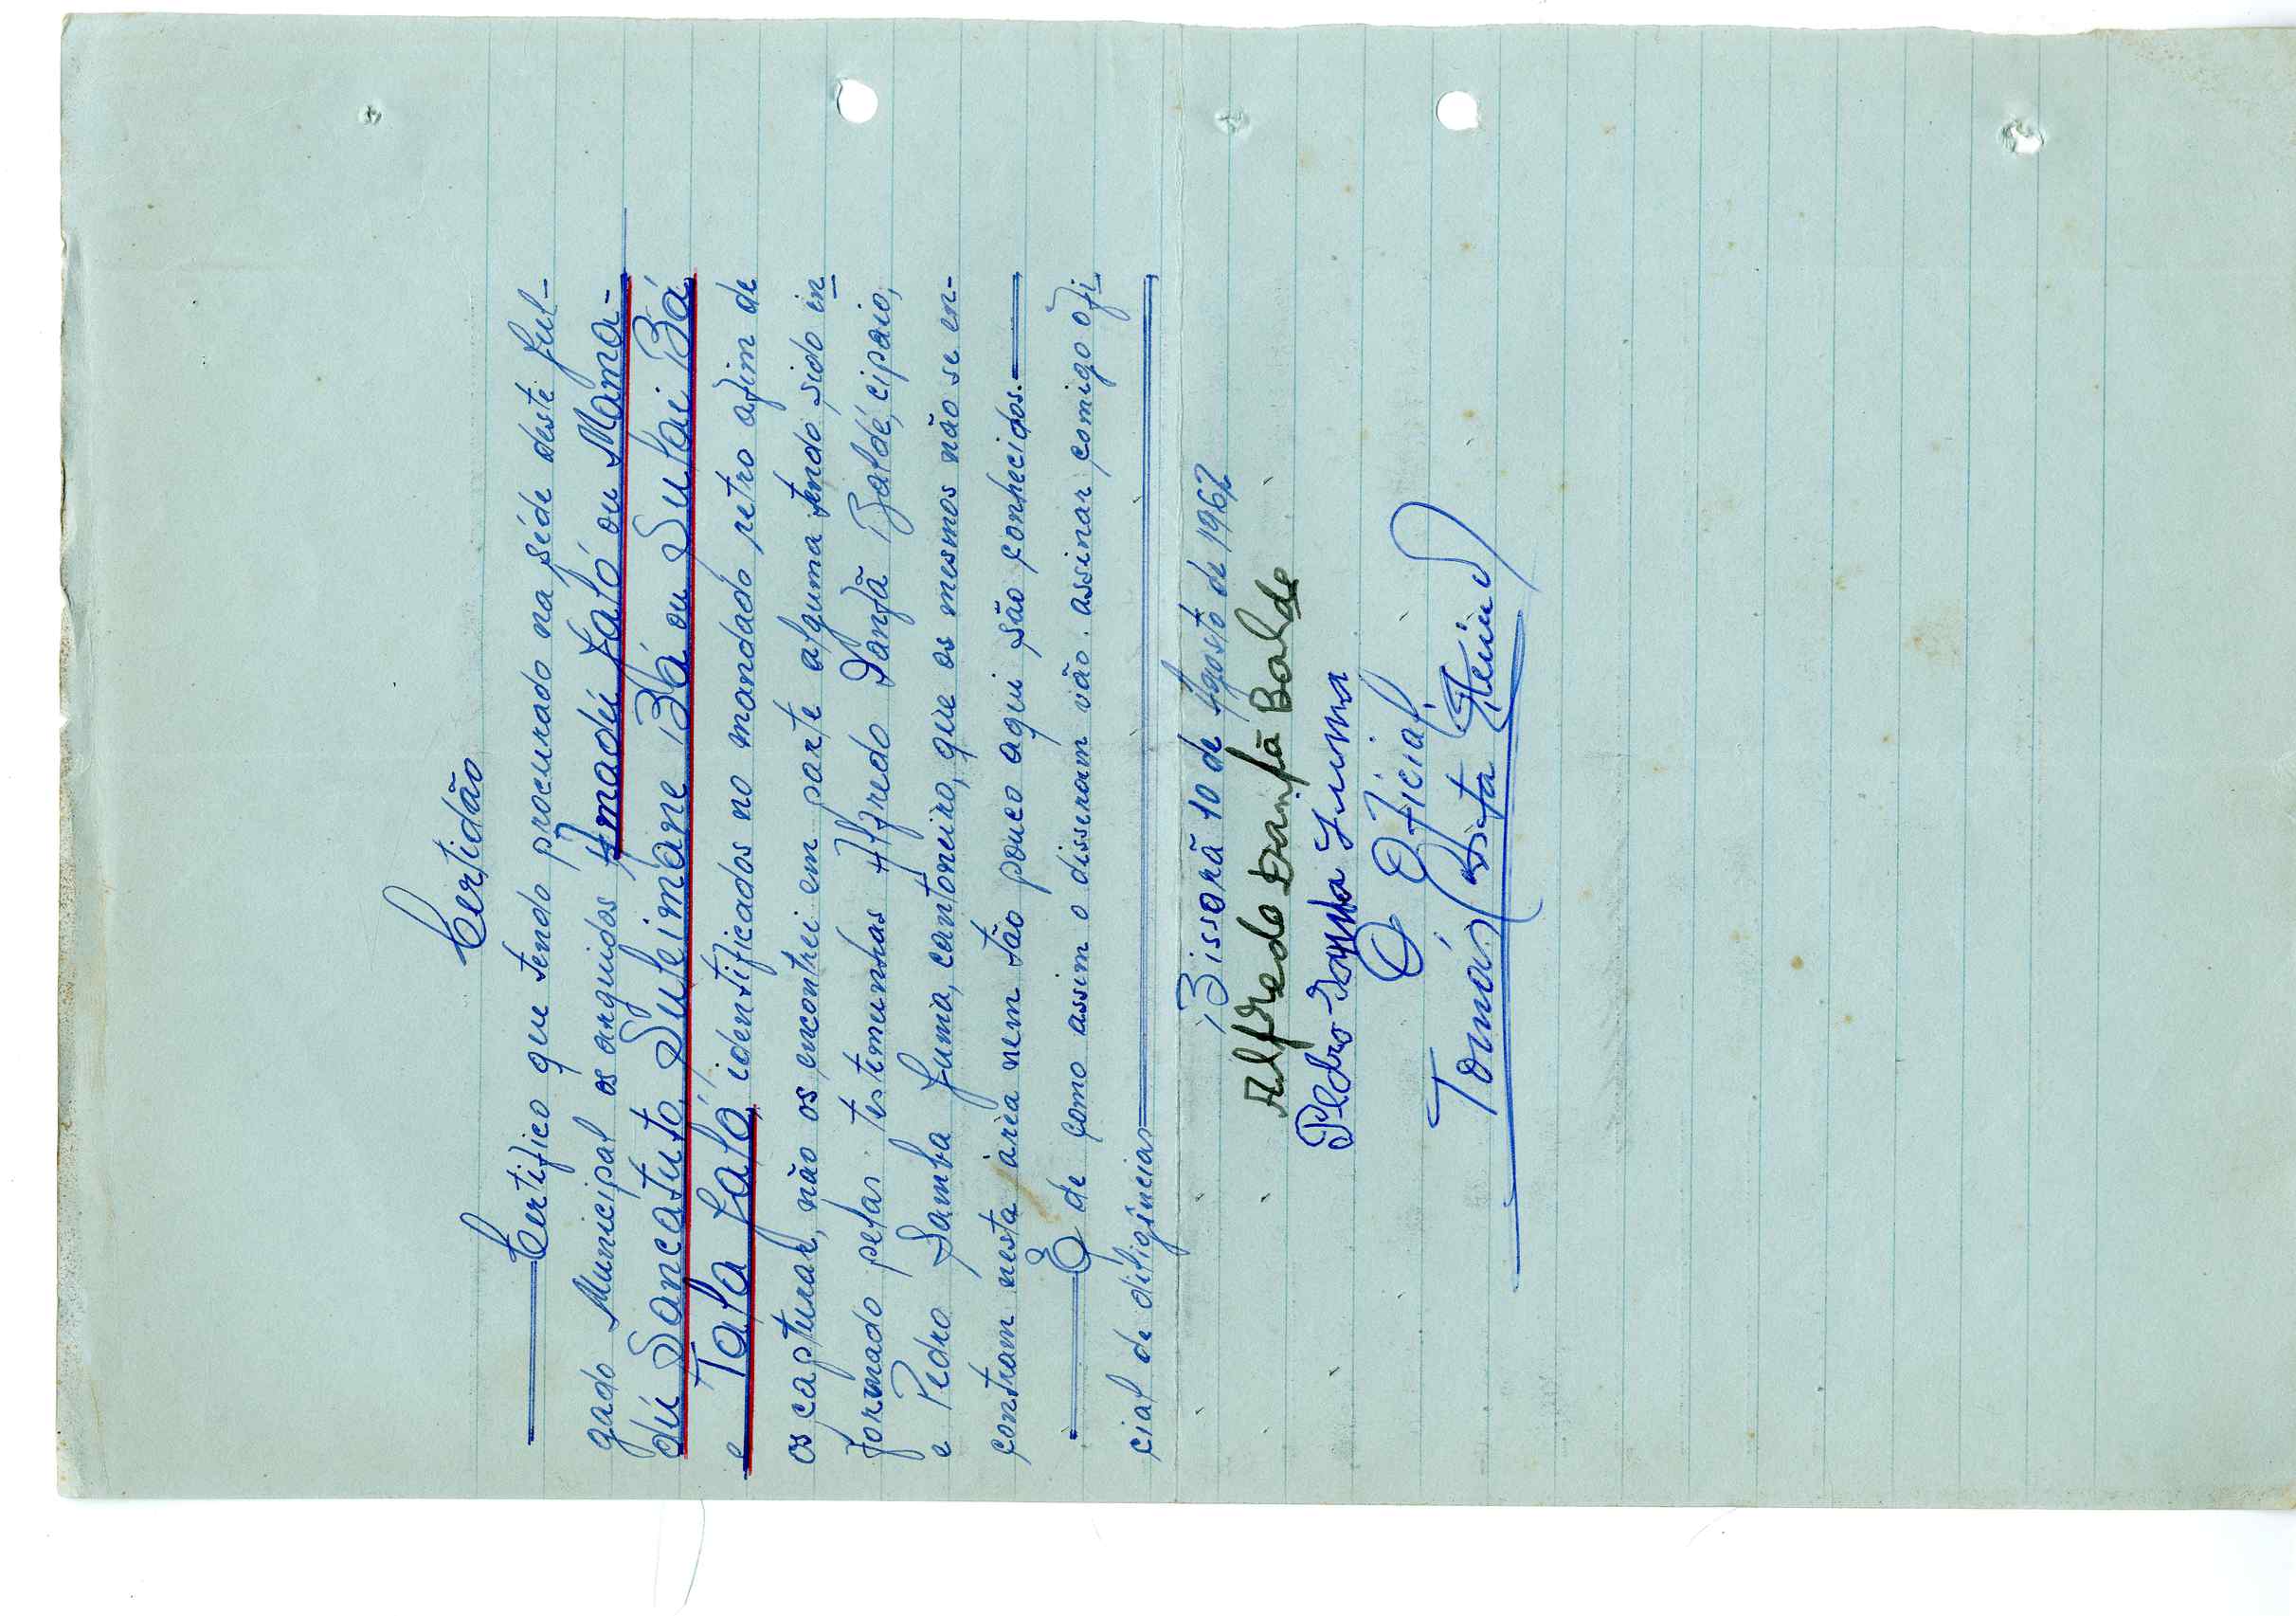 Certidão
Certifico que tendo procurado na séde deste Jul-
gado Municipal os arguidos Amadú Jaló ou Mama-
dú Sancatuto, Suleimane Bá ou Sulai Bá
e Tala Jaló, identificados no mandado retro afim de
os capturar, não os encontrei em parte alguma tendo sido in
formado pelas testemunhas Alfredo Danfã Baldé, cipaio,
e Pedro Samba Juma, cantoneiro, que os mesmos não se en-
contram nesta área nem tão pouco aqui são conhecidos.
E de como assim o disseram vão assinar comigo ofi
cial de diligências
Bissorã 10 de Agosto de 1962
Alfredo Danfã Balde
Pedro Juma
O Oficial,
Tomás Costa